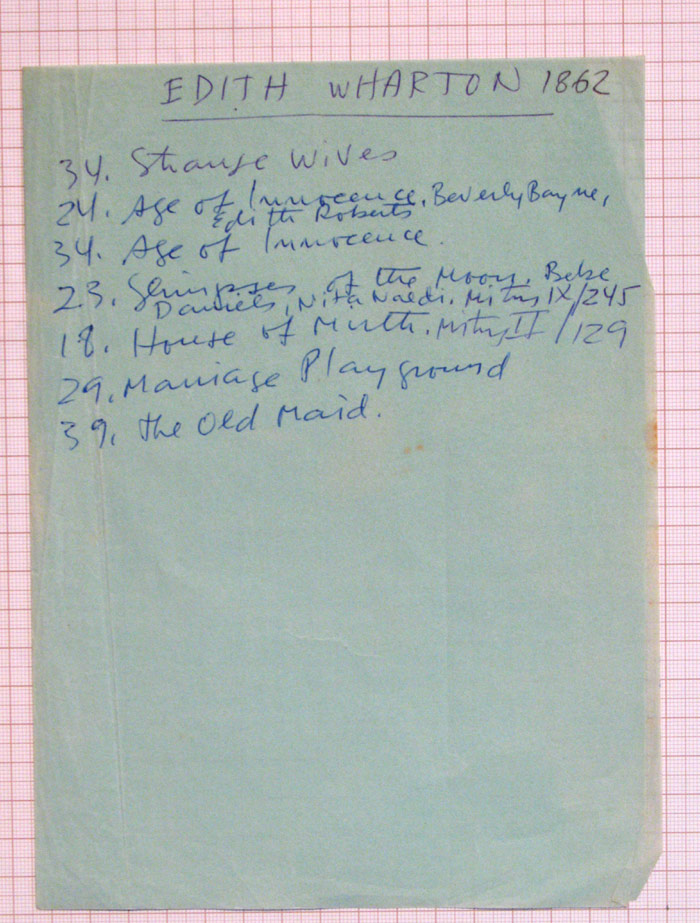 EDITH WHARTON 1862
34. Strange Wives
24. Age of Innocence. Beverly Bayne,
Edith Roberts
34. Age of Innocence.
23. Glimpses of the Moon. Bebe
Daniels, Nita Naldi. Mitry IX/245
18. House of Mirth. Mitry II/129
29. Marriage Playground
39. the Old Maid.